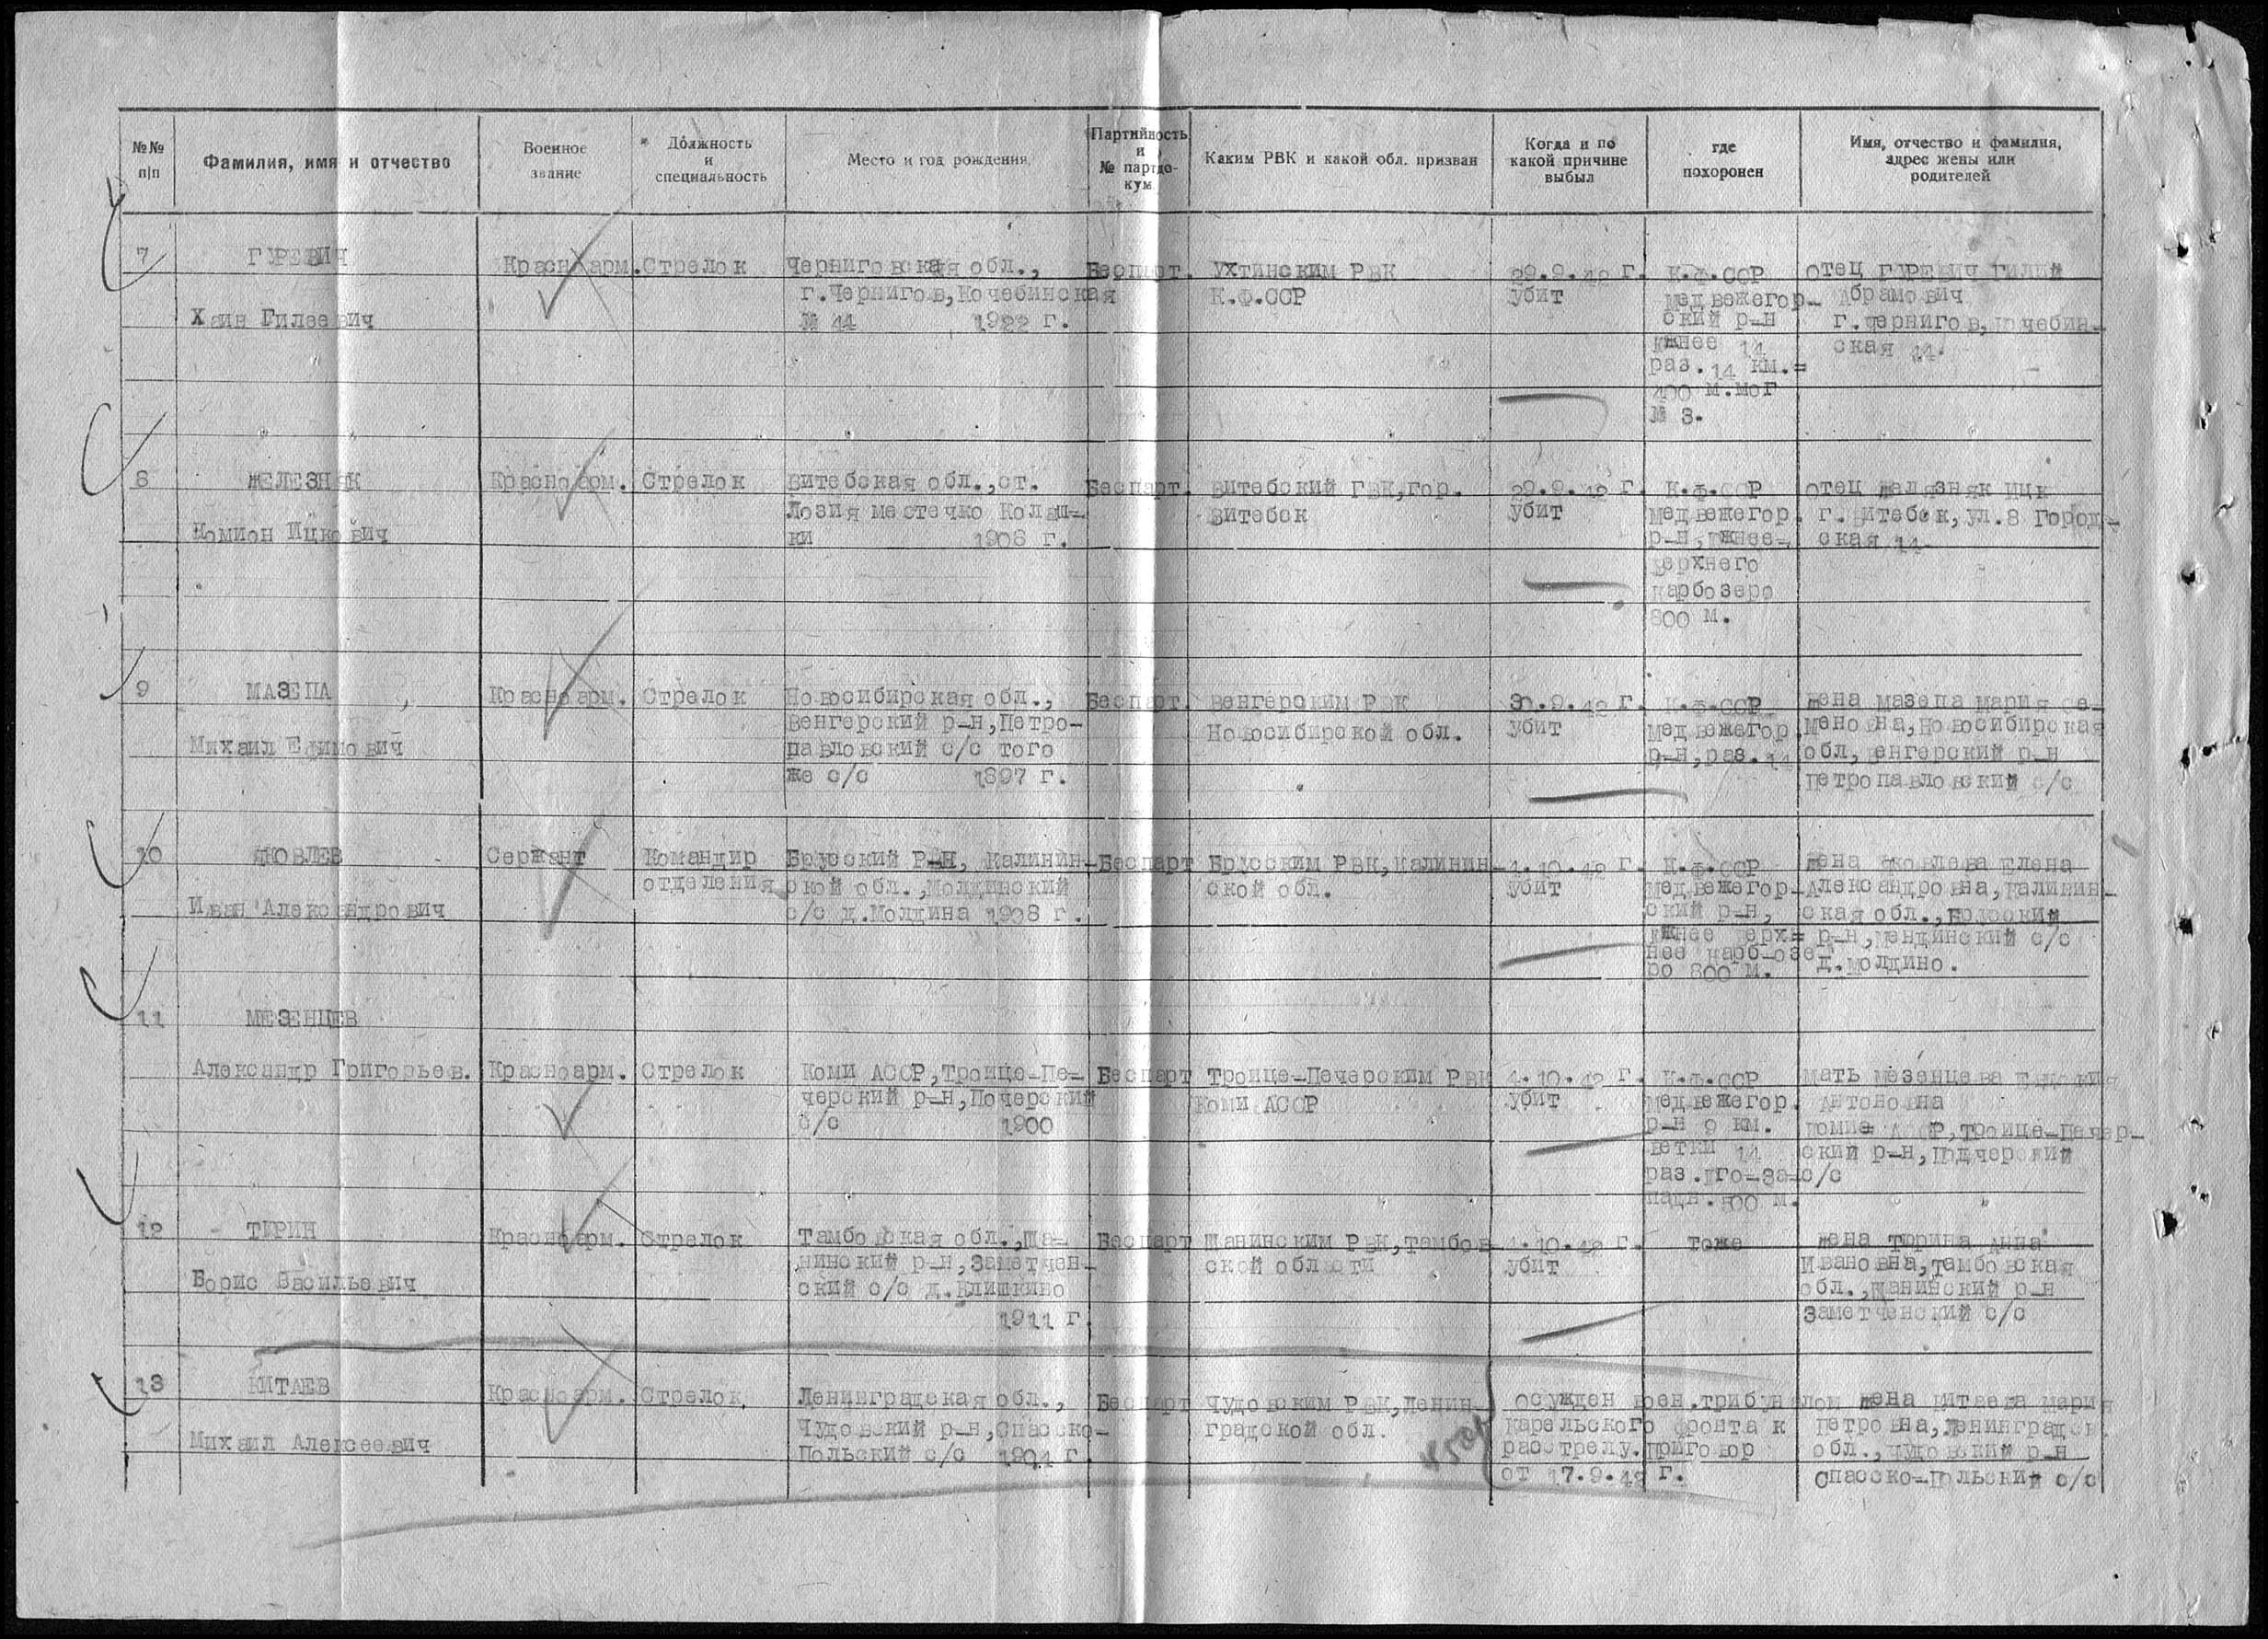 №№ п|п
Фамилия, имя и отчество
Военное звание
Должность и специальность
Место и год рождения
Партийность и № партдо-кум
Каким РВК и какой обл. призван
Когда и по какой причине выбыл
где похоронен
Имя, отчество и фамилия, адрес жены или родителей
7
ГУРЕВИЧ
Хаин Гилеевич
Красноарм.
Стрелок
Черниговская обл.,
г.Чернигов, Кочебинская
№ 44 1922 г.
Беспарт.
Ухтинским РВК
К.Ф.ССР
29.9.42 г.
убит
К.Ф.ССР
Медвежегор-
ский р-н
южнее 14
раз.14 км.=
400 м.мог
№ 3.
отец ГУРЕВИЧ Гилий
Абрамович
г.Чернигов, Кочебин-
ская 44.
8
ЖЕЛЕЗНЯК
Номион Ицкович
Красноарм.
Стрелок
Витебская обл.,ст.
Лозия местечко Колыш-
ки 1908 г.
Беспарт.
Витебский ГВК,гор.
Витебск
29.9.42 г.
убит
К.Ф.ССР
Медвежегор.
р-н, южнее-
Верхнего
Карбозеро
800 м.
отец Желязняк Ицк
г. Витебск, ул.8 Город-
ская 14
9
МАЗЕПА
Михаил Ефимович
Красноарм.
Стрелок
Новосибирская обл.,
Венгерский р-н,Петро-
павловский с/с того
же с/с 1897 г.
Беспарт.
Венгерским РВК
Новосибирской обл.
30.9.42 г.
убит
К.Ф.ССР
Медвежегор.
р-н, раз. 14
Жена Мазепа Мария Се-
меновна, Новосибирская
обл, Венгерский р-н
Петропавловский с/с
10
ЯКОВЛЕВ
Иван Александрович
Сержант
Командир
отделения
Брусский Р-Н, Калинин-
ской обл., Молдинский
с/с д.Молдина 1908 г.
Беспарт
Брусским РВК, Калинин-
ской обл.
1.10.42 г.
убит
К.Ф.ССР
Медвежегор-
ский р-н,
южнее Верх=
нее Карб-озе
ро 800 м.
Жена Яковлева Елена
Александровна, Калинин-
ская обл.,
р-н, с/с
д.Молдино.
11
МЕЗЕНЦЕВ
Александр Григорьев.
Красноарм.
Стрелок
Коми АССР, Троице-Пе-
черский р-н, Печерский
с/с 1900
Беспарт
Троице-Печерским РВК
Коми АССР
1.10.42 г.
убит
К.Ф.ССР
Медвежегор.
р-н 9 км.
ветки 14
раз. Юго-За-
падн. 500 м.
мать Мезенцева
Антоновна
Коми= АССР, Троице-Печер-
ский р-н, Подчерский
с/с
12
ТЮРИН
Борис Васильевич
Красноарм.
Стрелок
Тамбовская обл., Ша-
нинский р-н, Заметчен-
ский с/с д.Елишкино
1911 г.
Беспарт
Шанинским РВК, Тамбов
ской области
1.10.42 г.
убит
Тоже
Жена Тюрина Анна
Ивановна, Тамбовская
обл., Шанинский р-н
Заметченский с/с
13
КИТАЕВ
Михаил Алексеевич
Красноарм.
Стрелок
Ленинградская обл.,
Чудовский р-н, Спасско-
Польский с/с 1904 г.
Беспарт
Чудовским РВК, Ленин-
градской обл.
осужден воен.трибуналом
Карельского фронта к
расстрелу. Приговор
от 17.9.42 г.
Жена Китаева Мария
Петровна, Ленинградск.
обл., Чудовский р-н
Спасско-Польский с/с